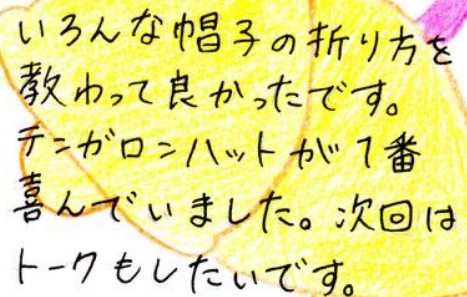 いろんな帽子の折り方を
教わって良かったです。
チンガロンハットが1番
喜んでいました。次回は
トークもしたいです。